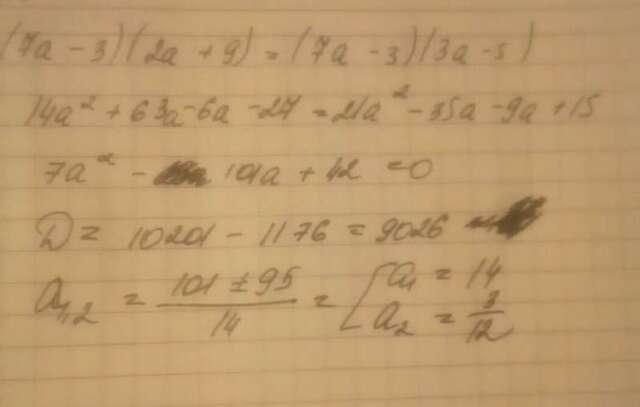 (7a - 3)(2a + 9) = (7a - 3)(3a - 5)
14a² + 63a - 6a - 27 = 21a² - 35a - 9a + 15
7a² - 101a + 42 = 0
D = 10201 - 1176 = 9026
a₁,₂ = (101 ± 95)/14 = [ a₁ = 14
a₂ = 3/12